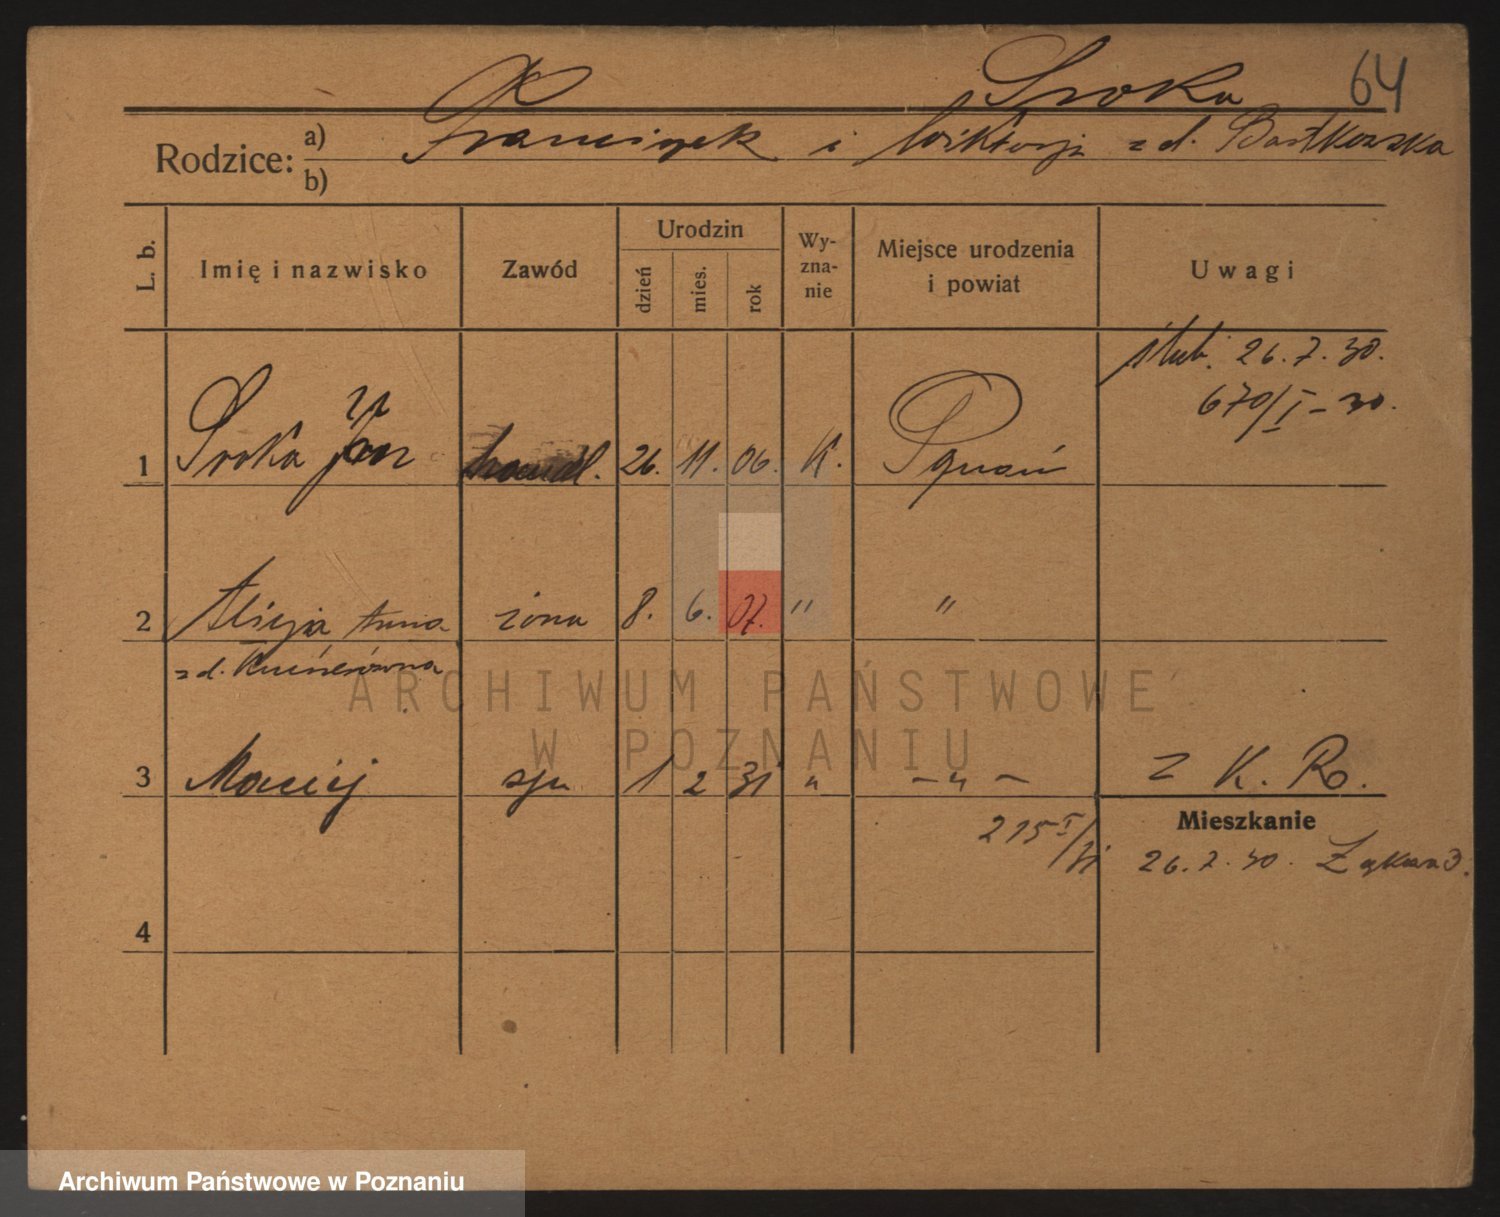 Sroka 64
Rodzice:
a) Franciszek i Wiktorja z d. Bartkowska
b)
L. b.
Imię i nazwisko
Zawód
Urodzin
dzień
mies.
rok
Wy-
zna-
nie
Miejsce urodzenia
i powiat
Uwagi
ślub. 26.7.30.
670/I-30.
1 Sroka Jan handl. 26. 11. 06. K. Poznań
2 Alicja Anna żona 8. 6. 07. " "
z d. Kuśnierówna
3 Maciej syn 1 2 31 " - " - z K. R.
215 I/31
Mieszkanie
26.7.30.
4
ARCHIWUM PAŃSTWOWE
W POZNANIU
Archiwum Państwowe w Poznaniu